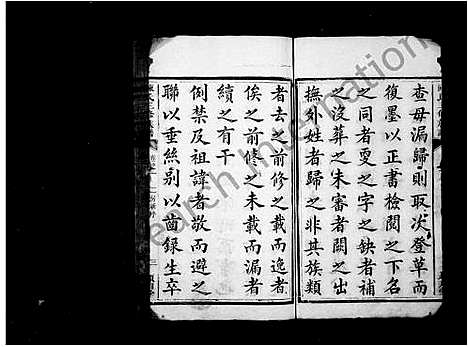 查毋漏歸則取次登草而
復墨以正書檢閱之下名
之同者更之字之缺者補
之沒葬之未審者闕之出
撫外姓者歸之非其族類
者去之前修之載而逸者
俟之前修之未載而漏者
續之有干
例禁及祖諱者敬而避之
聯以垂絲别以齒錄生卒